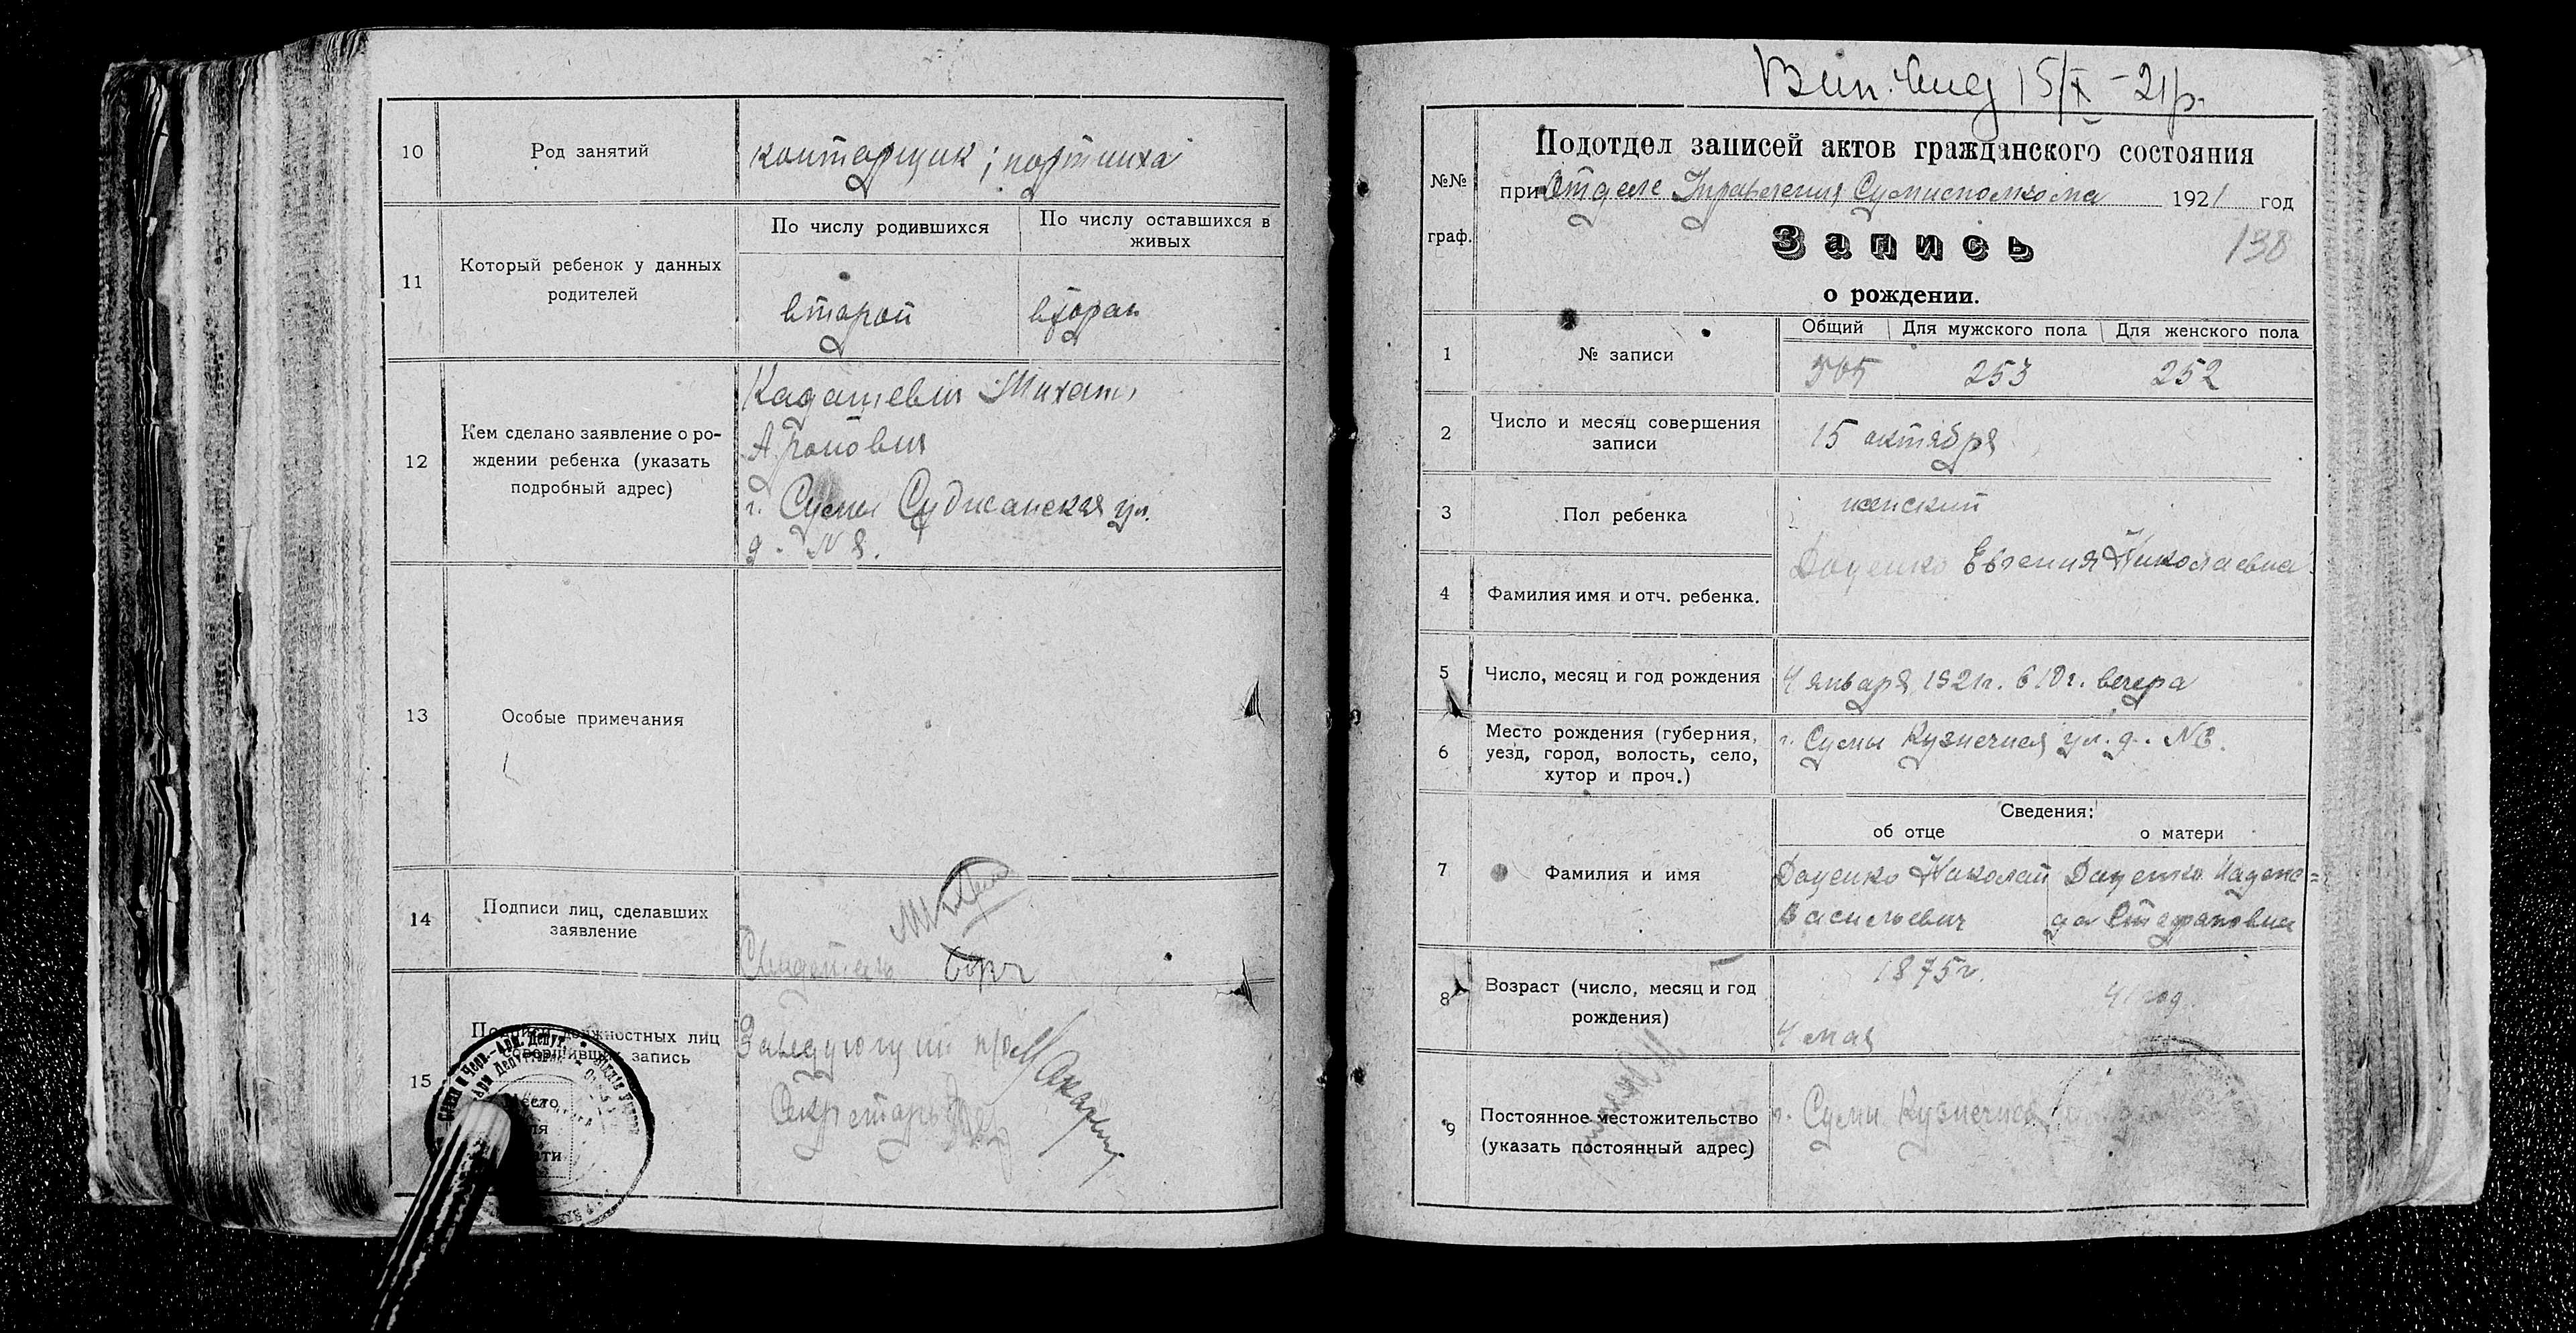 10
Род занятий
конторщик; портниха
11
Который ребенок у данных
родителей
По числу родившихся
По числу оставшихся в
живых
второй
12
Кем сделано заявление о ро-
ждении ребенка (указать
подробный адрес)
Кадашевич
Аронович
г. Сумы Суджанская ул.
д. № 8.
13
Особые примечания
14
Подписи лиц, сделавших
заявление
Свидетель
15
Подписи должностных лиц
совершивших запись
Заведующий
Секретарь
Место
15/X - 21 р.
№№
граф.
Подотдел записей актов гражданского состояния
при Отделе Управления Сумисполкома 1921 год
Запись
138
о рождении.
1
№ записи
Общий
Для мужского пола
Для женского пола
505
253
252
2
Число и месяц совершения
записи
15 октября
3
Пол ребенка
женский
4
Фамилия имя и отч. ребенка.
Доценко Евгения Николаевна
5
Число, месяц и год рождения
4 января 1921г. в 10 ч. вечера
6
Место рождения (губерния,
уезд, город, волость, село,
хутор и проч.)
г. Сумы Кузнечная ул. д.
7
Фамилия и имя
Сведения:
об отце
о матери
Доценко Николай
Васильевич
Доценко Надеж=
да Стефановна
8
Возраст (число, месяц и год
рождения)
1875 г.
4 мая
41 год
9
Постоянное местожительство
(указать постоянный адрес)
г. Сумы Кузнечная